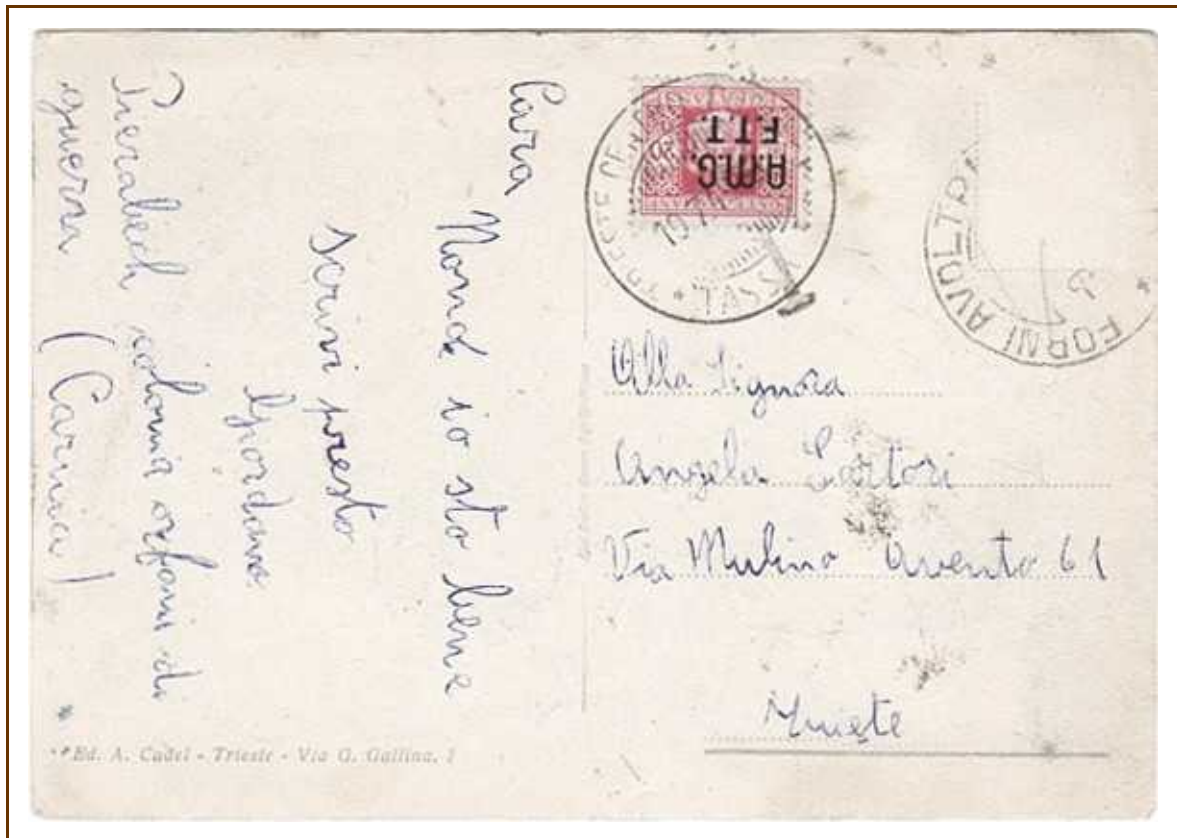 Cara
Nona io sto bene
scrivi presto
Giordano
Pierabech colonia orfani di
guerra (Carnia)
A.M.G.
F.T.T.
TASSE
FORNI AVOLTRI
Alla Signora
Angela Sartori
Via Mulino avento 61
Trieste
Ed. A. Cadel - Trieste - Via G. Gallina, 1